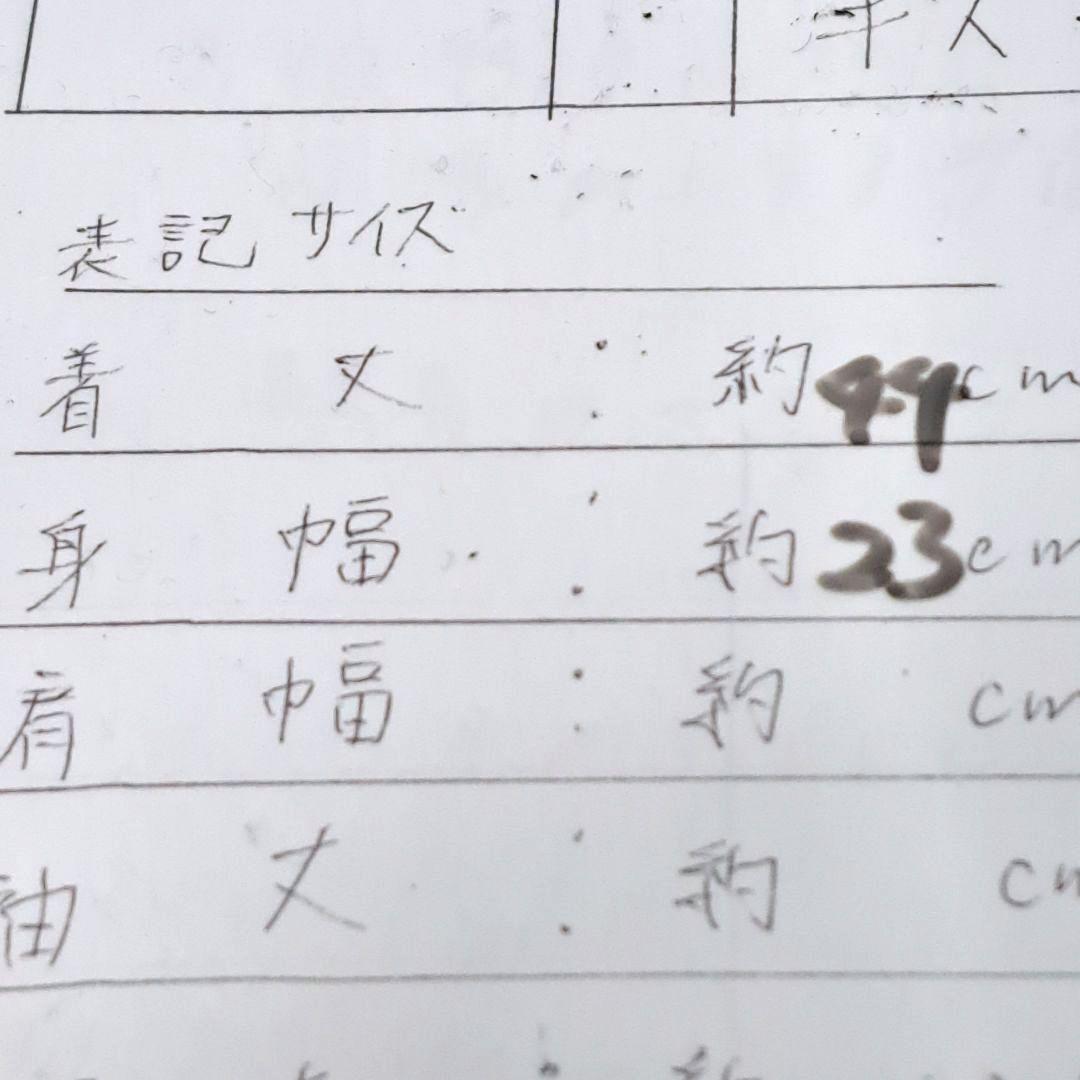 表記サイズ
着丈:約49cm
身幅:約23cm
肩幅:約 cm
袖丈:約 cm